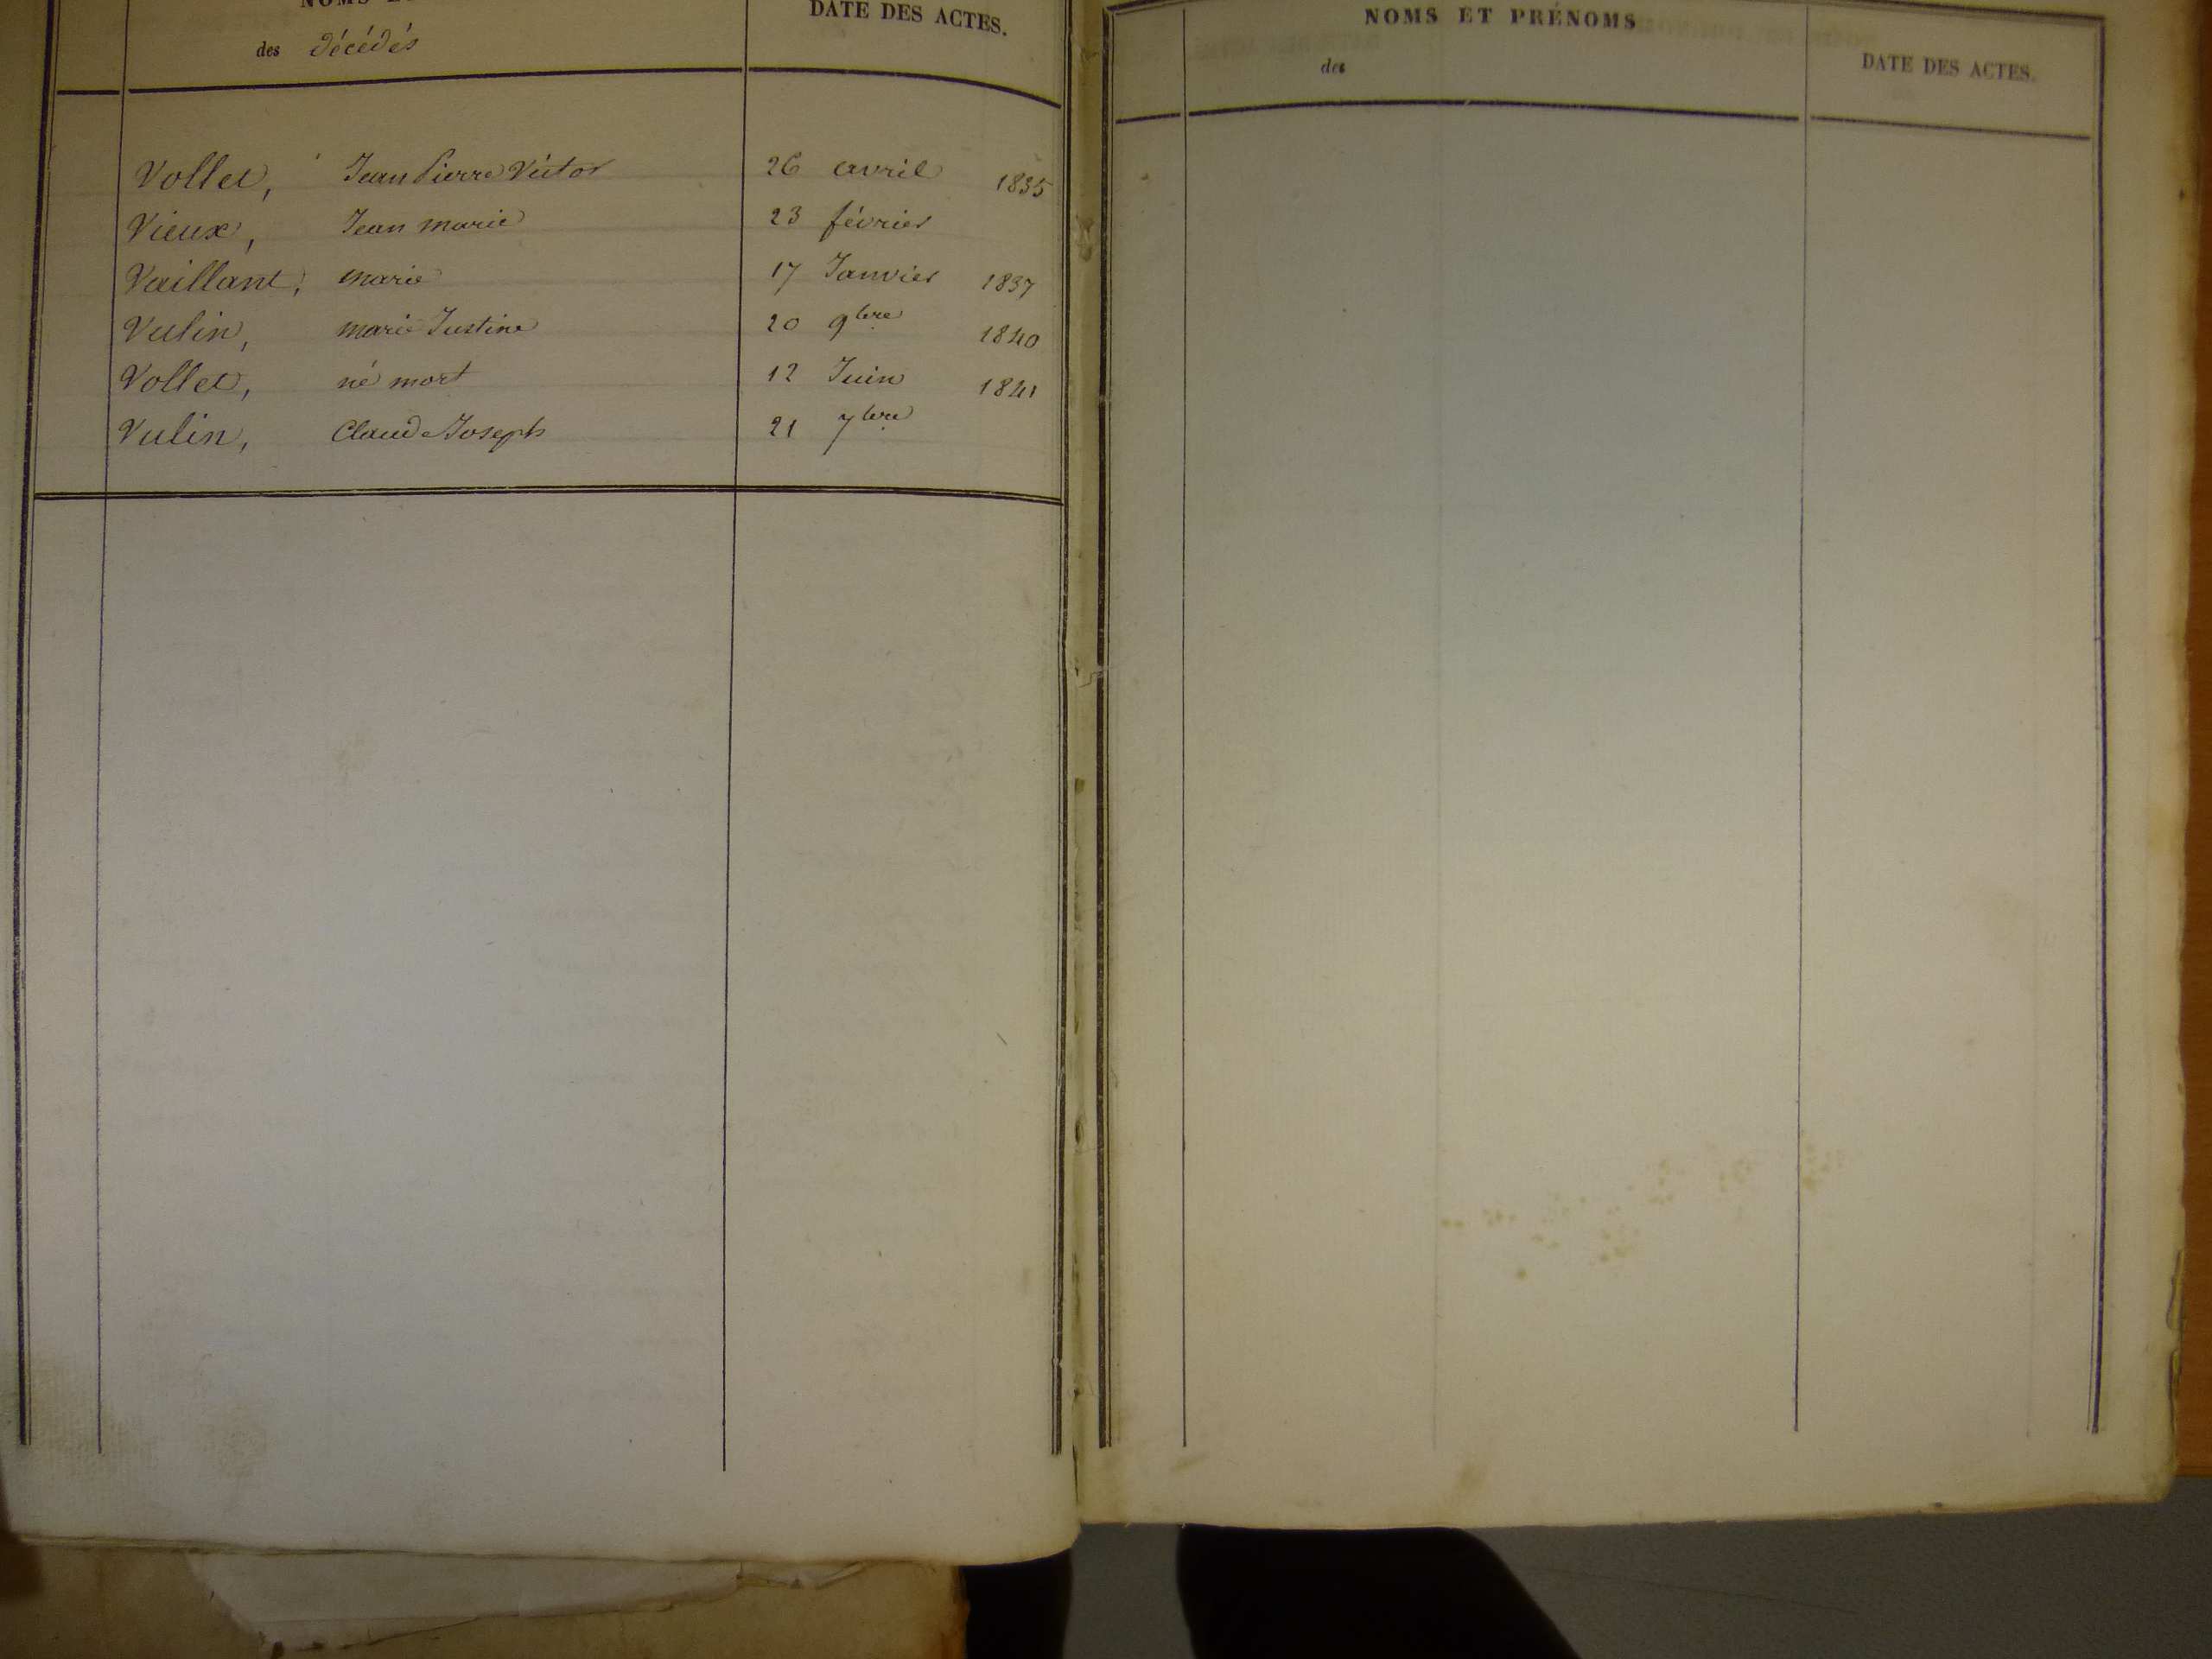 des décédés
DATE DES ACTES.
Vollet, Jean Pierre Victor 26 avril 1835
Vieux, Jean marie 23 février
Vaillant, marie 17 Janvier 1837
Vulin, marie Justine 20 9bre 1840
Vollet, né mort 12 Juin 1841
Vulin, Claude Joseph 21 7bre
NOMS ET PRÉNOMS
des
DATE DES ACTES.